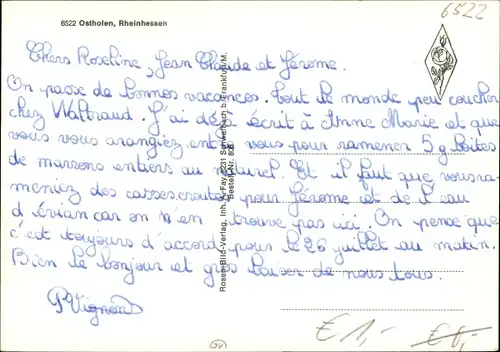 6522 Osthofen, Rheinhessen
6522
Chers Roseline, Jean Claude et Jérome.
On passe de bonnes vacances. tout le monde peu coucher
chez Waltraud. J'ai déja écrit à Anne Marie et que
vous vous arangiez entre vous pour ramener 5 g boites
de marrons entiers au naturel. Et il faut que vous ra-
meniez des casses croutes pour Jérome et de l'eau
d'évian car on n en trouve pas ici. On pense que
c'est toujours d'accord pour le 26 juillet au matin.
Bien le bonjour et gros baiser de nous tous.
PVignon
Rosen-Bild-Verlag, Inh. Fay, 6231 Schwalbach b. Frankfurt/M.
Bestell-Nr. 806
€ 1,-
€ 6,-